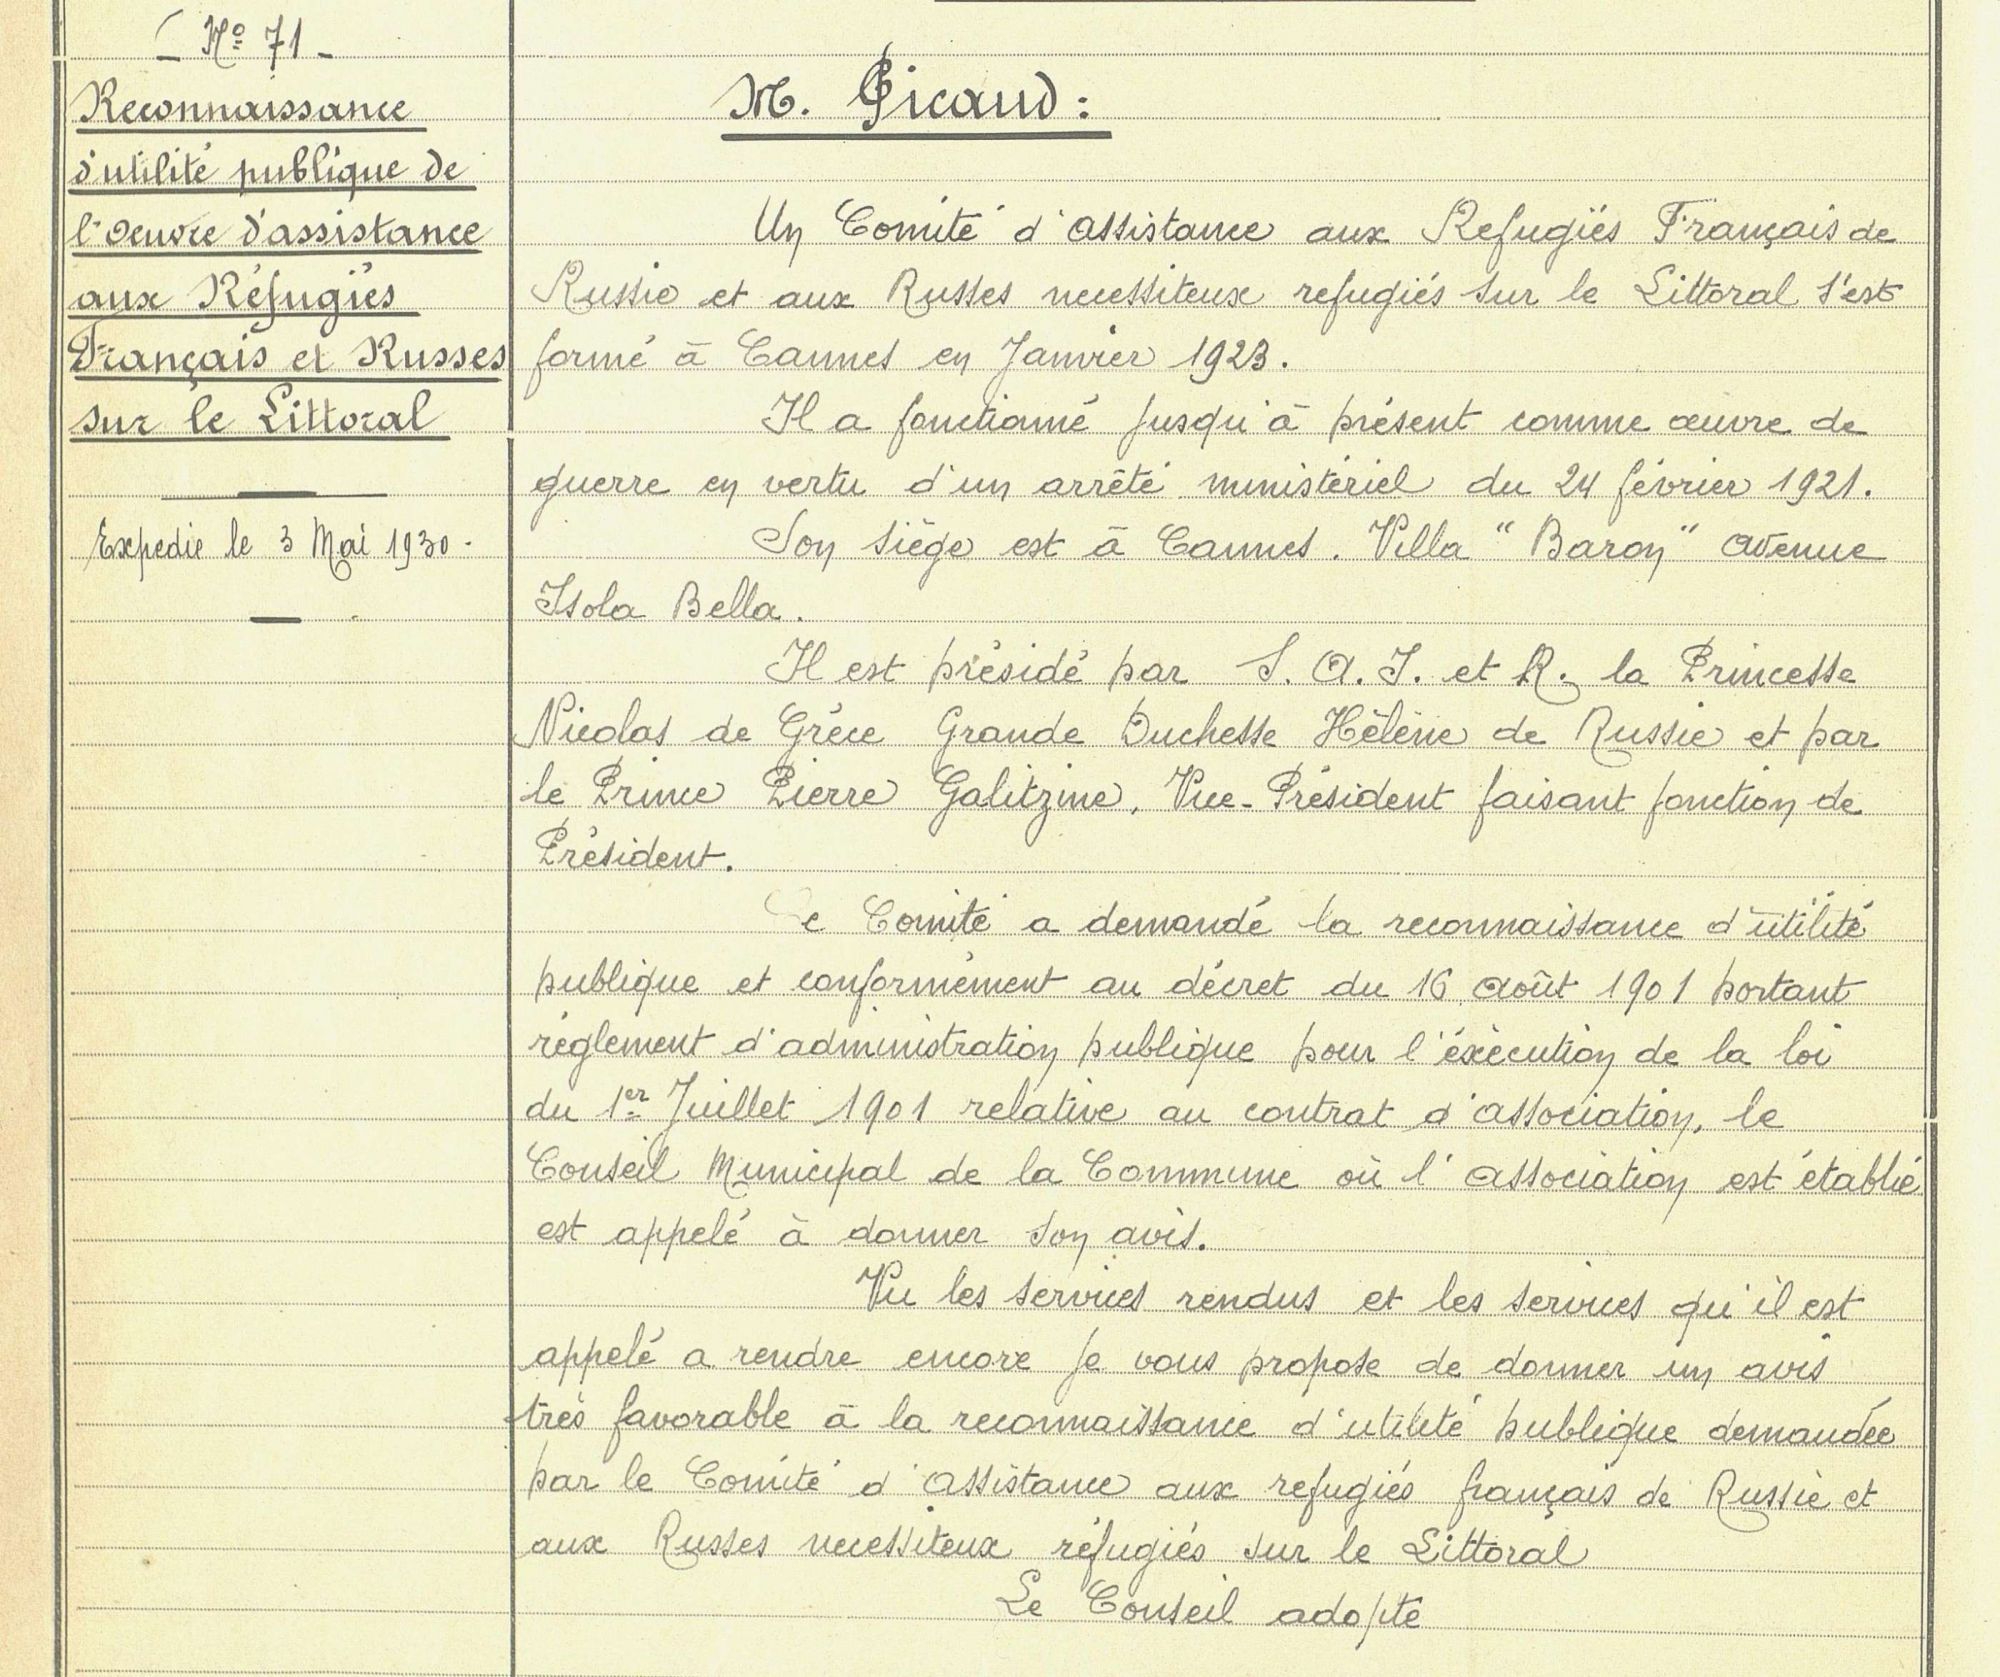 Nº 71 -
Reconnaissance
d'utilité publique de
l'Oeuvre d'assistance
aux Réfugiés
Français et Russes
sur le Littoral
Expedié le 3 Mai 1930 -
M. Picaud :
Un Comité d'assistance aux Refugiés Français de
Russie et aux Russes necessiteux refugiés sur le Littoral s'est
formé à Cannes en Janvier 1923.
Il a fonctionné jusqu'à présent comme œuvre de
guerre en vertu d'un arrêté ministériel du 24 février 1921.
Son siège est à Cannes. Villa "Baron" avenue
Isola Bella.
Il est présidé par S. A. I. et R. la Princesse
Nicolas de Grèce Grande Duchesse Hélène de Russie et par
le Prince Pierre Galitzine, Vice-Président faisant fonction de
Président.
Le Comité a demandé la reconnaissance d'utilité
publique et conformément au décret du 16 août 1901 portant
réglement d'administration publique pour l'éxècution de la loi
du 1er Juillet 1901 relative au contrat d'association, le
Conseil Municipal de la Commune où l'association est établie
est appelé à donner son avis.
Vu les services rendus et les services qu'il est
appelé a rendre encore je vous propose de donner un avis
très favorable à la reconnaissance d'utilité publique demandée
par le Comité d'assistance aux refugiés français de Russie et
aux Russes necessiteux réfugiés sur le Littoral
Le Conseil adopte